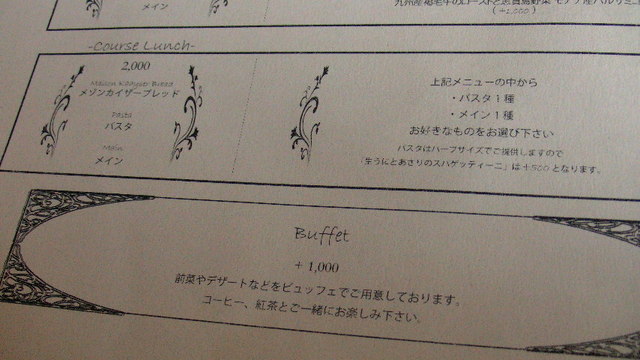 メイン
(+1,000)
-Course Lunch-
2,000
Maison Kayser Bread
メゾンカイザーブレッド
Pasta
パスタ
Main
メイン
上記メニューの中から
・パスタ1種
・メイン1種
お好きなものをお選び下さい
パスタはハーフサイズでご提供しますので
「生うにとあさりのスパゲッティーニ」は+500となります。
Buffet
+1,000
前菜やデザートなどをビュッフェでご用意しております。
コーヒー、紅茶とご一緒にお楽しみ下さい。